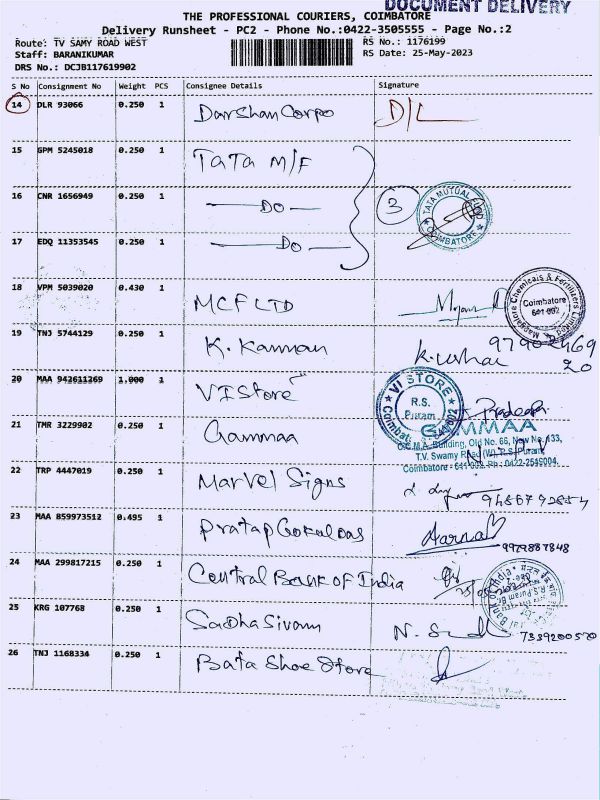 DOCUMENT DELIVERY
THE PROFESSIONAL COURIERS, COIMBATORE
Delivery Runsheet - PC2 - Phone No.:0422-3505555 - Page No.:2
Route: TV SAMY ROAD WEST RS No.: 1176199
Staff: BARANIKUMAR RS Date: 25-May-2023
DRS No.: DCJB117619902
S No Consignment No Weight PCS Consignee Details Signature
14 DLR 93066 0.250 1 Darshan Corpo D/L
15 GPM 5245018 0.250 1 TATA M/F
16 CNR 1656949 0.250 1 — DO — 3 TATA MUTUAL FUND COIMBATORE
17 EDQ 11353545 0.250 1 — DO —
18 VPM 5039020 0.430 1 MCF LTD Mangalore Chemicals & Fertilizers Limited Coimbatore 641 002
19 TNJ 5744129 0.250 1 K. Kannan
20 MAA 942611269 1.000 1 VI Store VI STORE R.S. Puram Coimbatore 641002 Pradeep
21 TMR 3229902 0.250 1 Gammaa GAMMAA
C.C.M.A. Building, Old No. 66, New No. 133,
T.V. Swamy Road (W), R.S. Puram,
Coimbatore - 641 002. Ph: 0422-2549004.
22 TRP 4447019 0.250 1 Marvel Signs
23 MAA 859973512 0.495 1 Pratap Gokuldas
24 MAA 299817215 0.250 1 Central Bank of India
25 KRG 107768 0.250 1 Sadha Sivam 7339200570
26 TNJ 1168334 0.250 1 Bata Shoe Store